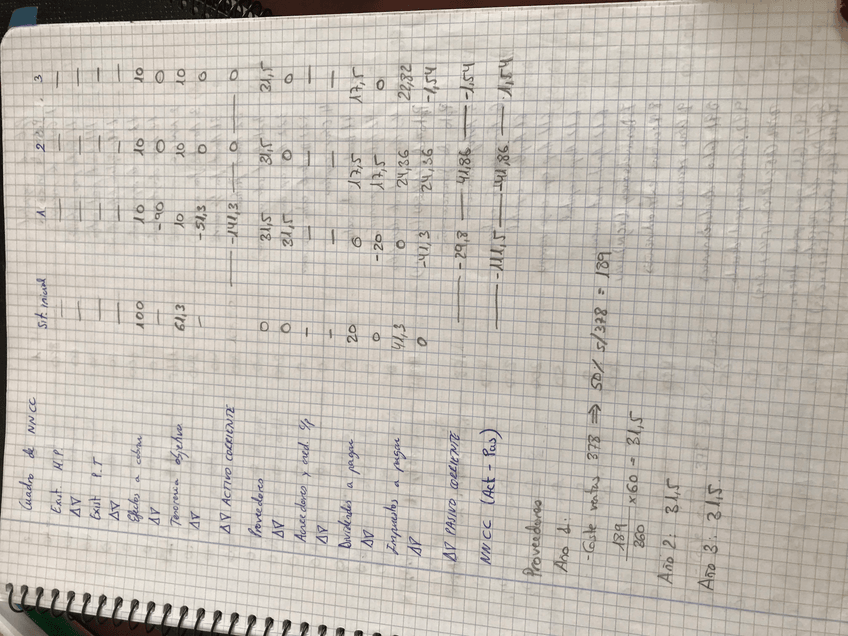 Cuadro de NNCC Sit. inicial 1 2 3
Exist. M.P. — — — —
ΔV — — — —
Exist P.T — — — —
ΔV — — — —
Efectos a cobrar 100 10 10 10
ΔV — -90 0 0
Tesorería objetivo 61,3 10 10 10
ΔV — -51,3 0 0
ΔV ACTIVO CORRIENTE -141,3 0 0
Proveedores 0 31,5 31,5 31,5
ΔV 0 31,5 0 0
Acreedores y cred. c/p — — — —
ΔV — — — —
Dividendos a pagar 20 0 17,5 17,5
ΔV 0 -20 17,5 0
Impuestos a pagar 41,3 0 24,36 22,82
ΔV 0 -41,3 24,36 -1,54
ΔV PASIVO CORRIENTE -29,8 41,86 -1,54
NNCC (Act - Pas) -111,5 -41,86 1,54
Proveedores
Ano 1:
- Coste ventas 378 ⇒ 50% s/378 = 189
189
360 x60 = 31,5
Año 2: 31,5
Año 3: 31,5